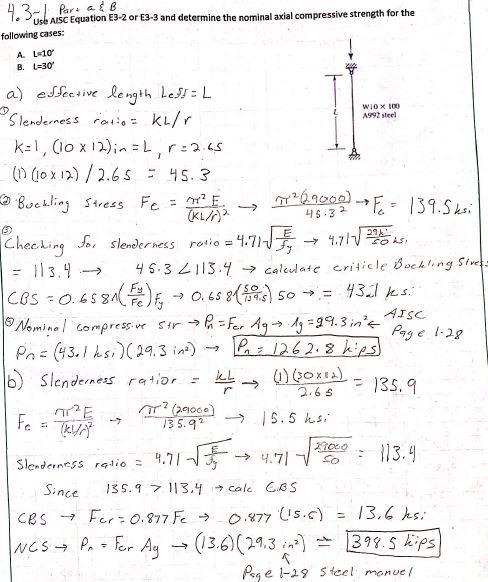 4.3-1 Part a & B
Use AISC Equation E3-2 or E3-3 and determine the nominal axial compressive strength for the
following cases:
A. L=10'
B. L=30'
L
W10 X 100
A992 steel
a) effective length Leff = L
① Slenderness ratio = KL/r
K=1, (10 x 12)in = L, r = 2.65
(1)(10x12)/2.65 = 45.3
② Buckling Stress Fe = π²E/(KL/r)² → π²(29000)/45.3² → Fe = 139.5 ksi
③ Checking for slenderness ratio = 4.71√(E/fy) → 4.71√(29k/50 ksi)
= 113.4 → 45.3 < 113.4 → calculate criticle Buckling Stress
CBS = 0.658^(Fy/Fe) Fy → 0.658^(50/139.5) 50 → = 43.1 ksi
Nominal compressive str → Pn = Fcr Ag → Ag = 29.3 in² ← AISC
Page 1-28
Pn = (43.1 ksi)(29.3 in²) → Pn = 1262.8 kips
b) Slenderness ratior = kL/r → (1)(30x12)/2.65 = 135.9
Fe = π²E/(kL/r)² → π²(29000)/135.9² → 15.5 ksi
Slenderness ratio = 4.71√(E/fy) → 4.71√(29000/50) = 113.4
Since 135.9 > 113.4 → calc CBS
CBS → Fcr = 0.877 Fe → 0.877 (15.5) = 13.6 ksi
NCS → Pn = Fcr Ag → (13.6)(29.3 in²) = 398.5 kips
Page 1-28 Steel manuel